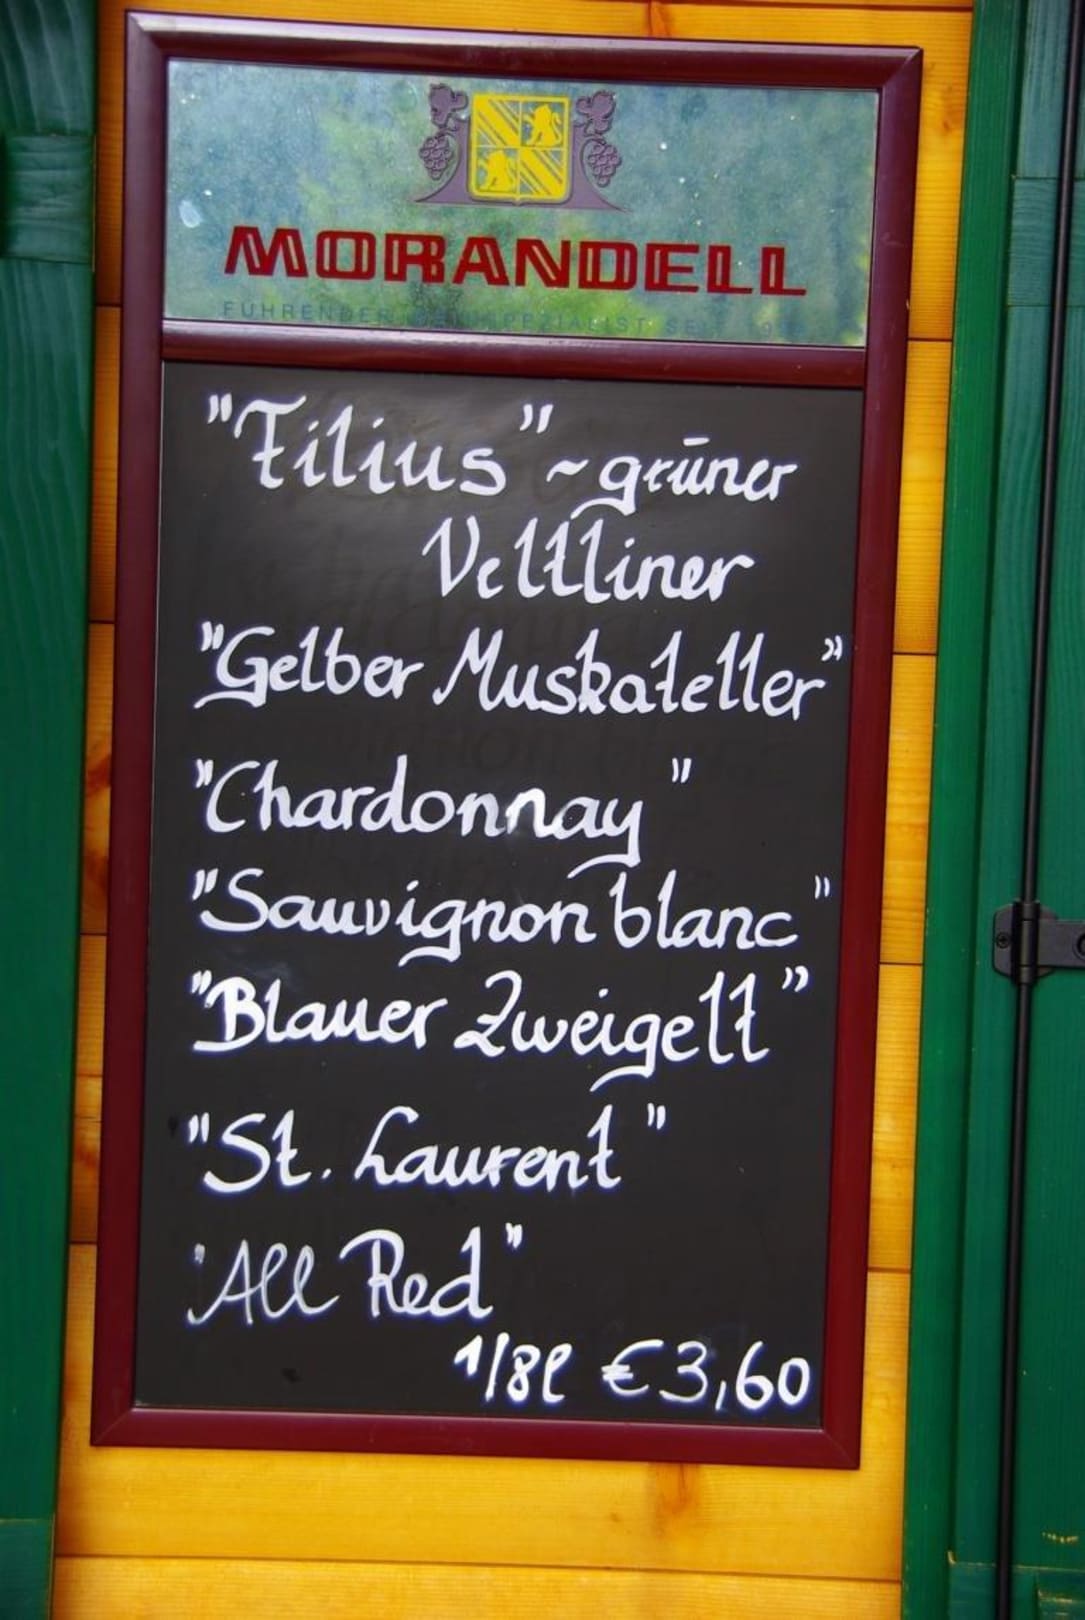 MORANDELL
FÜHRENDER WEINSPEZIALIST SEIT
"Filius" ~ grüner
Veltliner
"Gelber Muskateller"
"Chardonnay"
"Sauvignon blanc"
"Blauer Zweigelt"
"St. Laurent"
"All Red"
1/8l €3,60